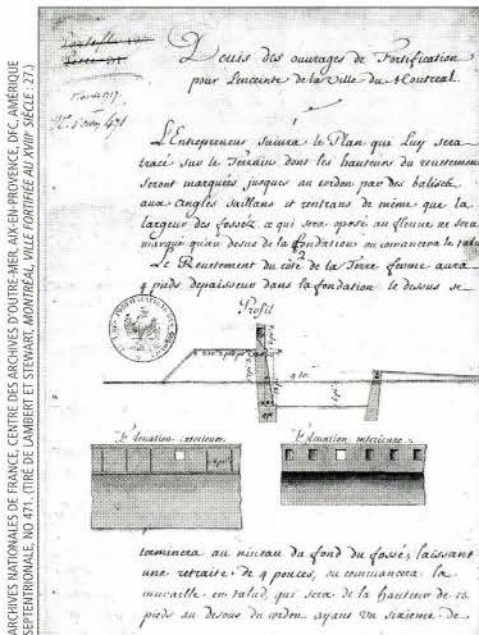 ARCHIVES NATIONALES DE FRANCE, CENTRE DES ARCHIVES D'OUTRE-MER, AIX-EN-PROVENCE, DFC, AMÉRIQUE
SEPTENTRIONALE, NO 471. (TIRÉ DE LAMBERT ET STEWART, MONTRÉAL, VILLE FORTIFIÉE AU XVIIIe SIÈCLE : 27.)
1717.
471
Devis des ouvrages de Fortification
pour Lenceinte de la Ville du Montreal.
1
L'Entrepreneur suivra le Plan que Luy sera
tracé sur le Terrain dont les hauteurs du revettement
seront marquées jusques au cordon par des balises
aux angles saillans et rentrans de même que la
largeur des fossez, ce qui sera oposé au fleuve ne sera
marqué qu'au desus de la fondation ou comancera le talu
2
Le Revettement du côté de la Terre ferme aura
4 pieds depaisseur dans la fondation le dessus se
Profil
Elevation exterieure
Elevation interieure
terminera au niveau du fond du fossé, laissant
une retraite de 4 pouces, ou commancera la
muraille en talud, qui sera de la hauteur de
pieds au desous du cordon ayans un sixieme de